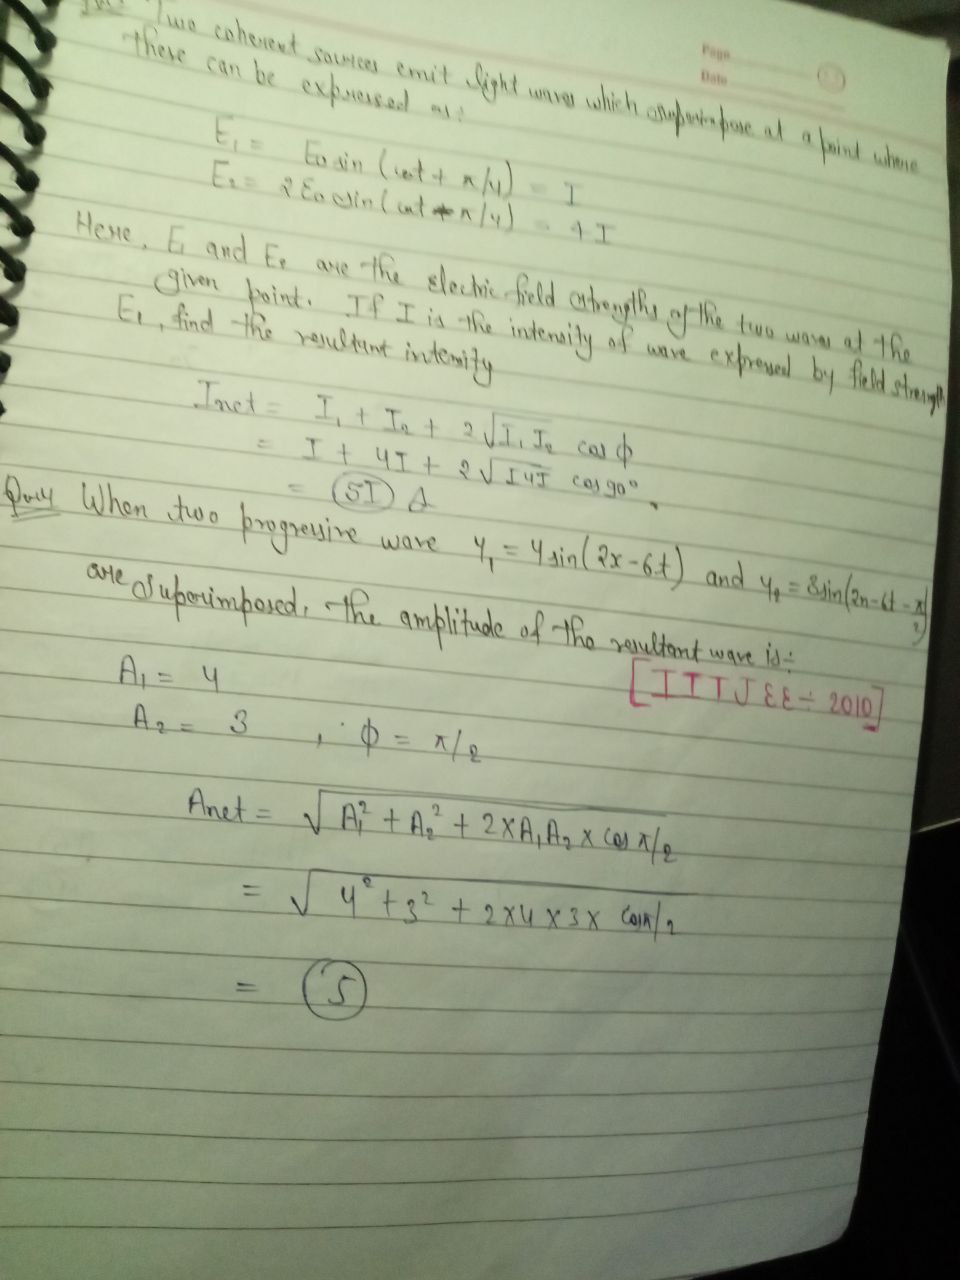 Page
Date
Two coherent sources emit light waves which superimpose at a point where
these can be expressed as:
E₁ = E₀ sin (ωt + π/4) = I
E₂ = 2E₀ sin (ωt - π/4) = 4I
Here, E₁ and E₂ are the electric field strengths of the two waves at the
given point. If I is the intensity of wave expressed by field strength
E₁, find the resultant intensity
Inet = I₁ + I₂ + 2√I₁ I₂ cos ϕ
= I + 4I + 2√I4I cos 90°.
= 5I
When two progressive wave y₁ = 4 sin(2x-6t) and y₂ = 3sin(2x-6t-π/2)
are superimposed, the amplitude of the resultant wave is÷
[IIT JEE ÷ 2010]
A₁ = 4
A₂ = 3 , ϕ = π/2
Anet = √A₁² + A₂² + 2×A₁A₂ × cos π/2
= √4² + 3² + 2×4×3× cosπ/2
= 5